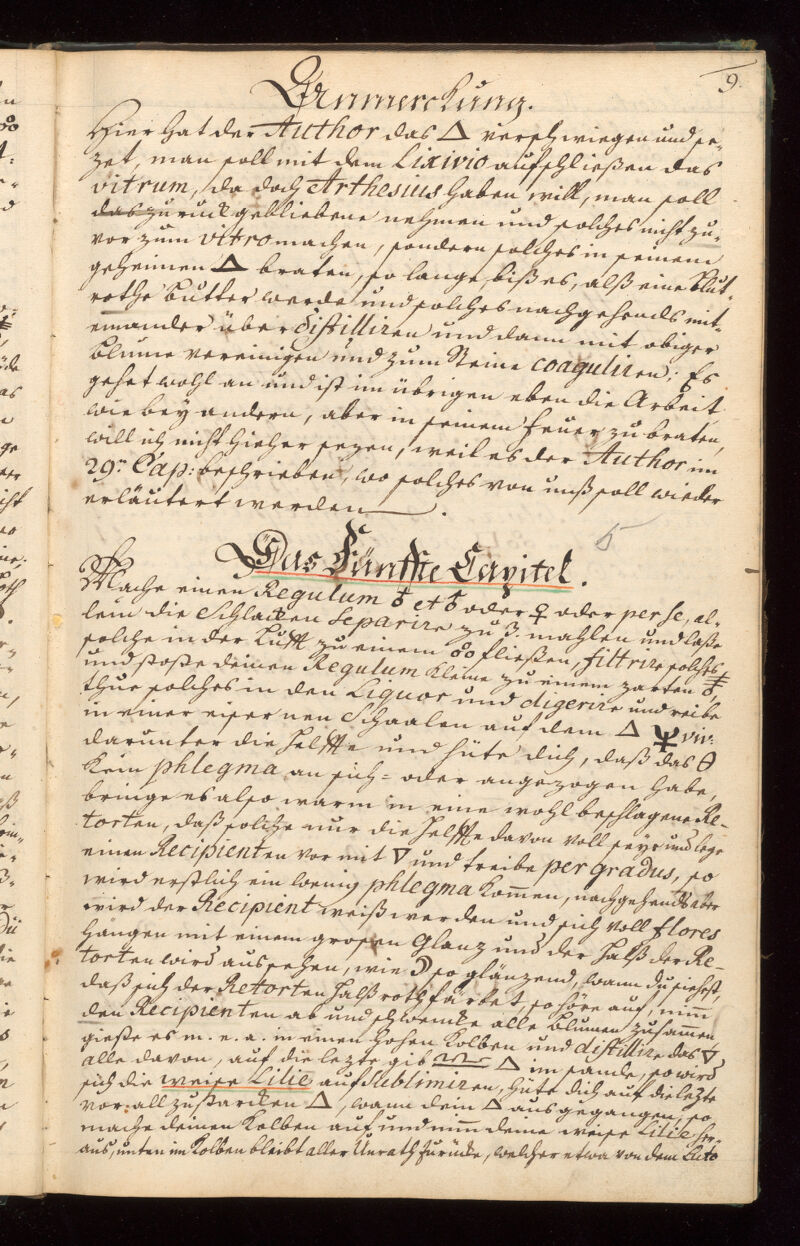 9.
Anmerckung.
Hier hat der Author das 🜂 verschwiegen und se-
zet, man soll mit dem Lixivio aufschließen das
vitrum, da doch Arthesius haben will, man soll
das zurückgebliebene nehmen und solches nicht zu-
vor zum vitro machen, sondern solches in seinem
geheimen 🜂 braten, so lange biß es, alß eine blut-
rothe butter werde und solches nachgehends mit-
einander über distilliren und dann mit obiger
blume vereinigen und zum Steine coaguliren; Es
gehet wohl an und ist im übrigen eben die Arbeit
wie bey andern, aber in seinem feuer zu braten,
will ich nicht hieher sezen, weil es der Author im
29.n Cap: beschrieben, wo solches von unß soll wieder
erläutert werden.
5
Das Fünffte Capitel.
Mache einen Regulum ♁ et ♂ oder ♀ oder per se, al-
lein die Schlacken separire zu 3. mahlen und laße
solche in der Lufft zu einem fließen, filtrire solches
und stoße deinen Regulum kleine zu einem zarten
thue solches in den Liquor und digerire und reibe
in einer eisernen Schaalen auf dem 🜂 viv:
darunter die helffte und hüte dich, daß das
kein phlegma an sich- oder angezogen habe,
bringe es also warm in eine wohl beschlagene Re-
torten, daß solche nur die helffte davon voll seye und lege
einen Recipienten vor mit 🜄 und treibe per gradus, so
wird erstlich ein wenig phlegma kommen, nachgehends aber
wird der Recipient weiß werden und sich voll flores
hangen mit einem grosen Glanz und der halß der Re-
torten wird aussehen, wie ☽ so glänzend, wann du siehst,
daß sich der Retorten halß roth färbet, so höre auf, nim
den Recipienten ab und schwencke alle blumen zusammen
gieße es m. e. a. in einen hohen Kolben und distillire das 🜄
alle davon, auf die lezte gib 🜂 im sande, so wird
sich die weise Lilie auf sublimiren, hüte dich auf die lezte
vor all zu starcken 🜂, wann dein 🜂 ausgegangen, so
mache deinen Kolben auf und nimm deine weise Lilie her-
aus, unten im Kolben bleibt aller Unrath zurücke, welcher etwa von dem Luto